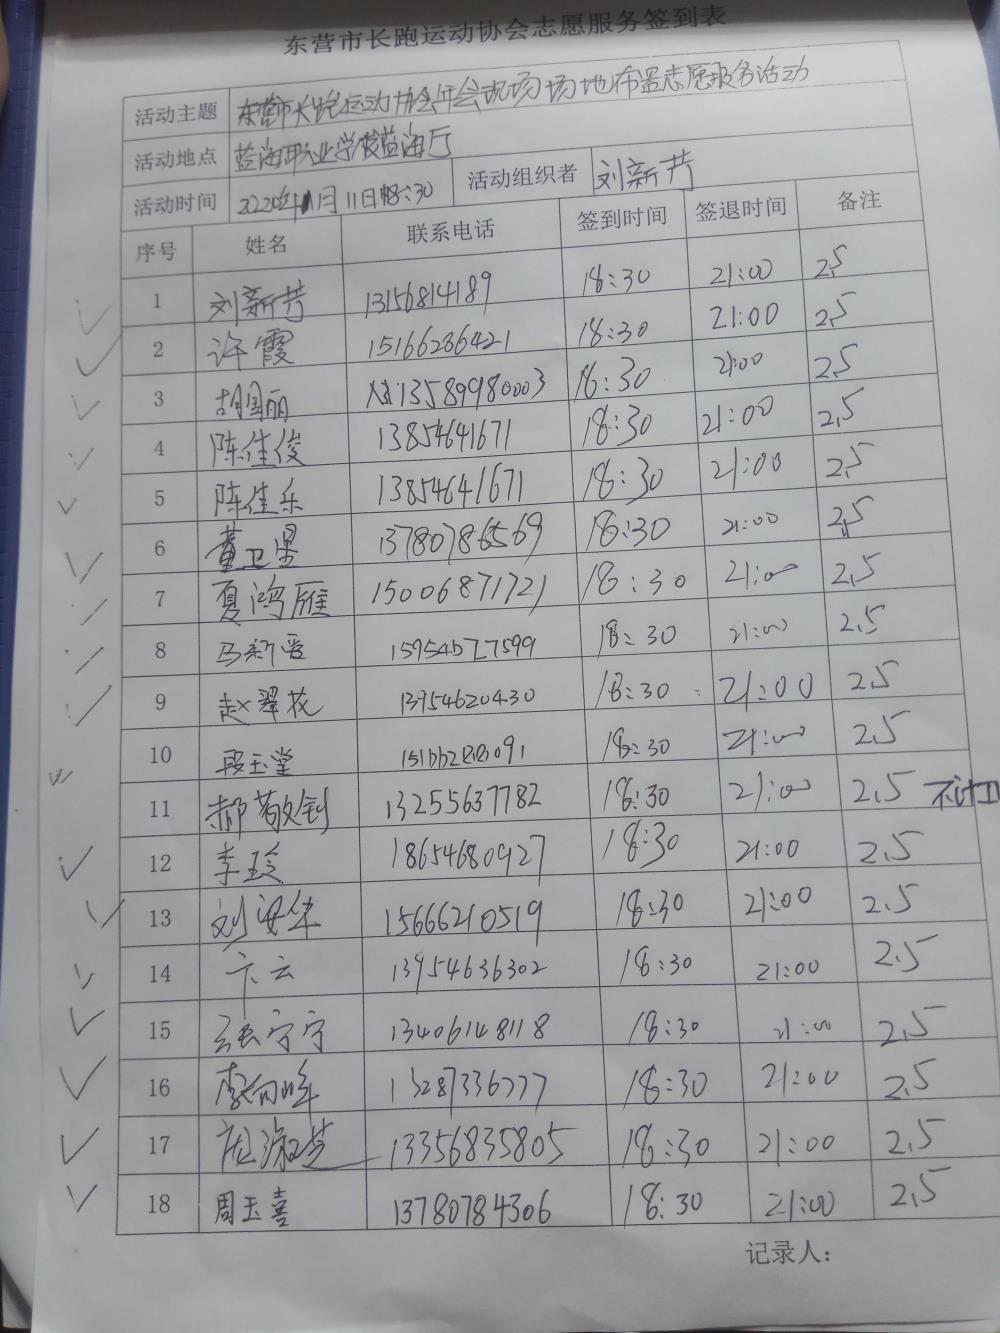 东营市长跑运动协会志愿服务签到表
活动主题 东营市长跑运动协会年会现场场地布置志愿服务活动
活动地点 蓝海职业学校蓝海厅
活动时间 2020年1月11日18:30 活动组织者 刘新芳
序号 姓名 联系电话 签到时间 签退时间 备注
1 刘新芳 13156814189 18:30 21:00 2.5
2 许霞 15166286421 18:30 21:00 2.5
3 胡国丽 13589980003 18:30 21:00 2.5
4 陈佳俊 13854641671 18:30 21:00 2.5
5 陈佳乐 13854641671 18:30 21:00 2.5
6 董卫星 13780786569 18:30 21:00 2.5
7 夏鸿雁 15006871721 18:30 21:00 2.5
8 马新爱 15954577599 18:30 21:00 2.5
9 赵翠花 13954620430 18:30 21:00 2.5
10 段玉堂 18:30 21:00 2.5
11 郝敬钊 13255637782 18:30 21:00 2.5 不计工
12 李玲 18654680927 18:30 21:00 2.5
13 刘洪华 15666210519 18:30 21:00 2.5
14 卞云 13954636302 18:30 21:00 2.5
15 张宁宁 13406148118 18:30 21:00 2.5
16 李向峰 13287336777 18:30 21:00 2.5
17 淑芝 13356835805 18:30 21:00 2.5
18 周玉喜 13780784306 18:30 21:00 2.5
记录人：